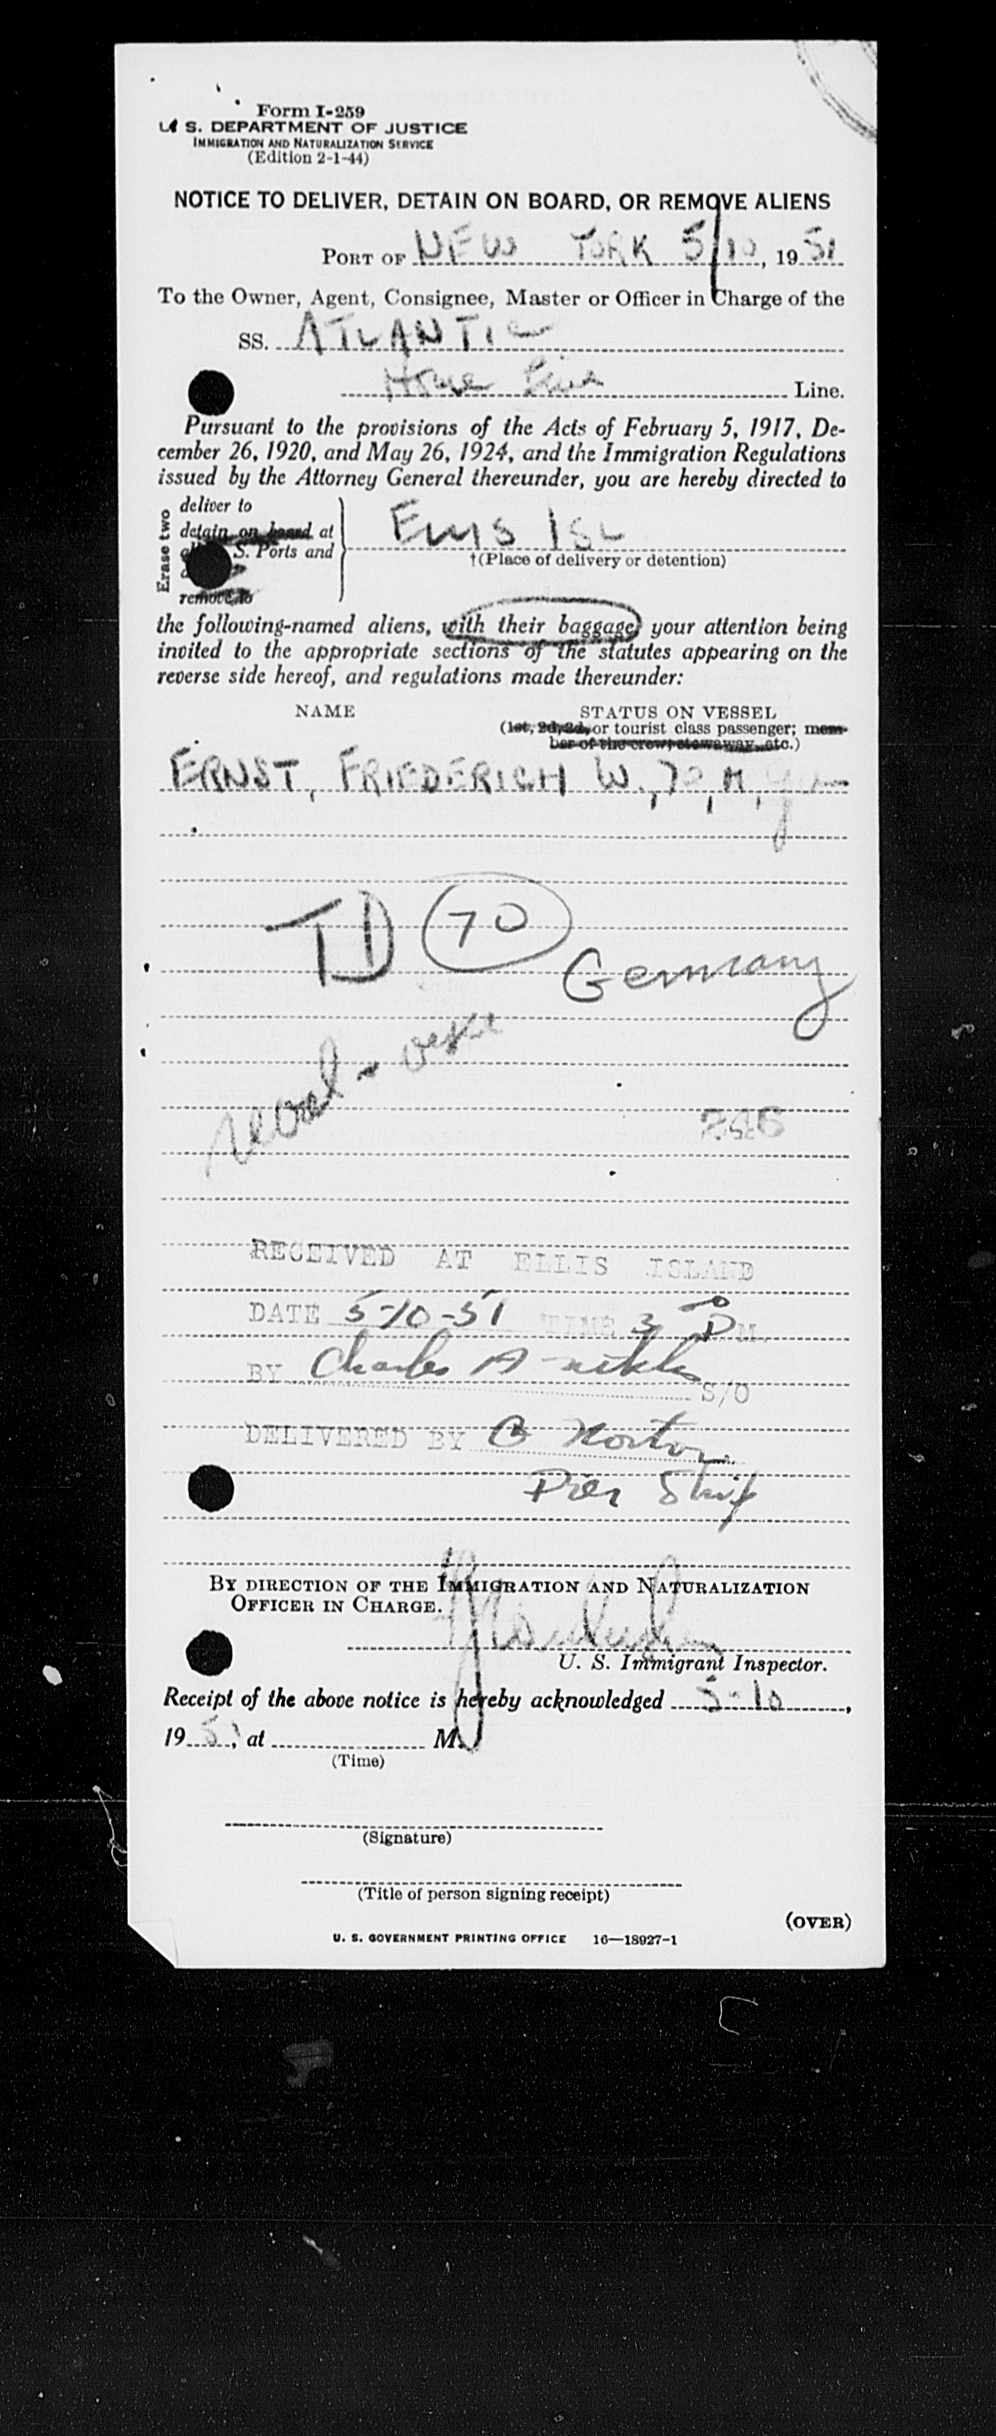 Form I-259
U. S. DEPARTMENT OF JUSTICE
IMMIGRATION AND NATURALIZATION SERVICE
(Edition 2-1-44)
NOTICE TO DELIVER, DETAIN ON BOARD, OR REMOVE ALIENS
PORT OF NEW YORK 5/10, 1951
To the Owner, Agent, Consignee, Master or Officer in Charge of the
SS. ATLANTIC
Home Line Line.
Pursuant to the provisions of the Acts of February 5, 1917, De-
cember 26, 1920, and May 26, 1924, and the Immigration Regulations
issued by the Attorney General thereunder, you are hereby directed to
Erase two
deliver to
detain on board at
S. Ports and
remove to
Ellis Isl
†(Place of delivery or detention)
the following-named aliens, with their baggage, your attention being
invited to the appropriate sections of the statutes appearing on the
reverse side hereof, and regulations made thereunder:
NAME STATUS ON VESSEL
(1st, 2d, 3d, or tourist class passenger; mem-
ber of the crew, stowaway, etc.)
ERNST, FRIEDERICH W., 70, M,
TD 70
Germany
RECEIVED AT ELLIS ISLAND
DATE 5-10-51 TIME 3 P M.
BY Charles A S/O
DELIVERED BY Norton
Pier
BY DIRECTION OF THE IMMIGRATION AND NATURALIZATION
OFFICER IN CHARGE.
U. S. Immigrant Inspector.
Receipt of the above notice is hereby acknowledged 5-10,
1951, at M.
(Time)
(Signature)
(Title of person signing receipt)
(OVER)
U. S. GOVERNMENT PRINTING OFFICE 16—18927-1